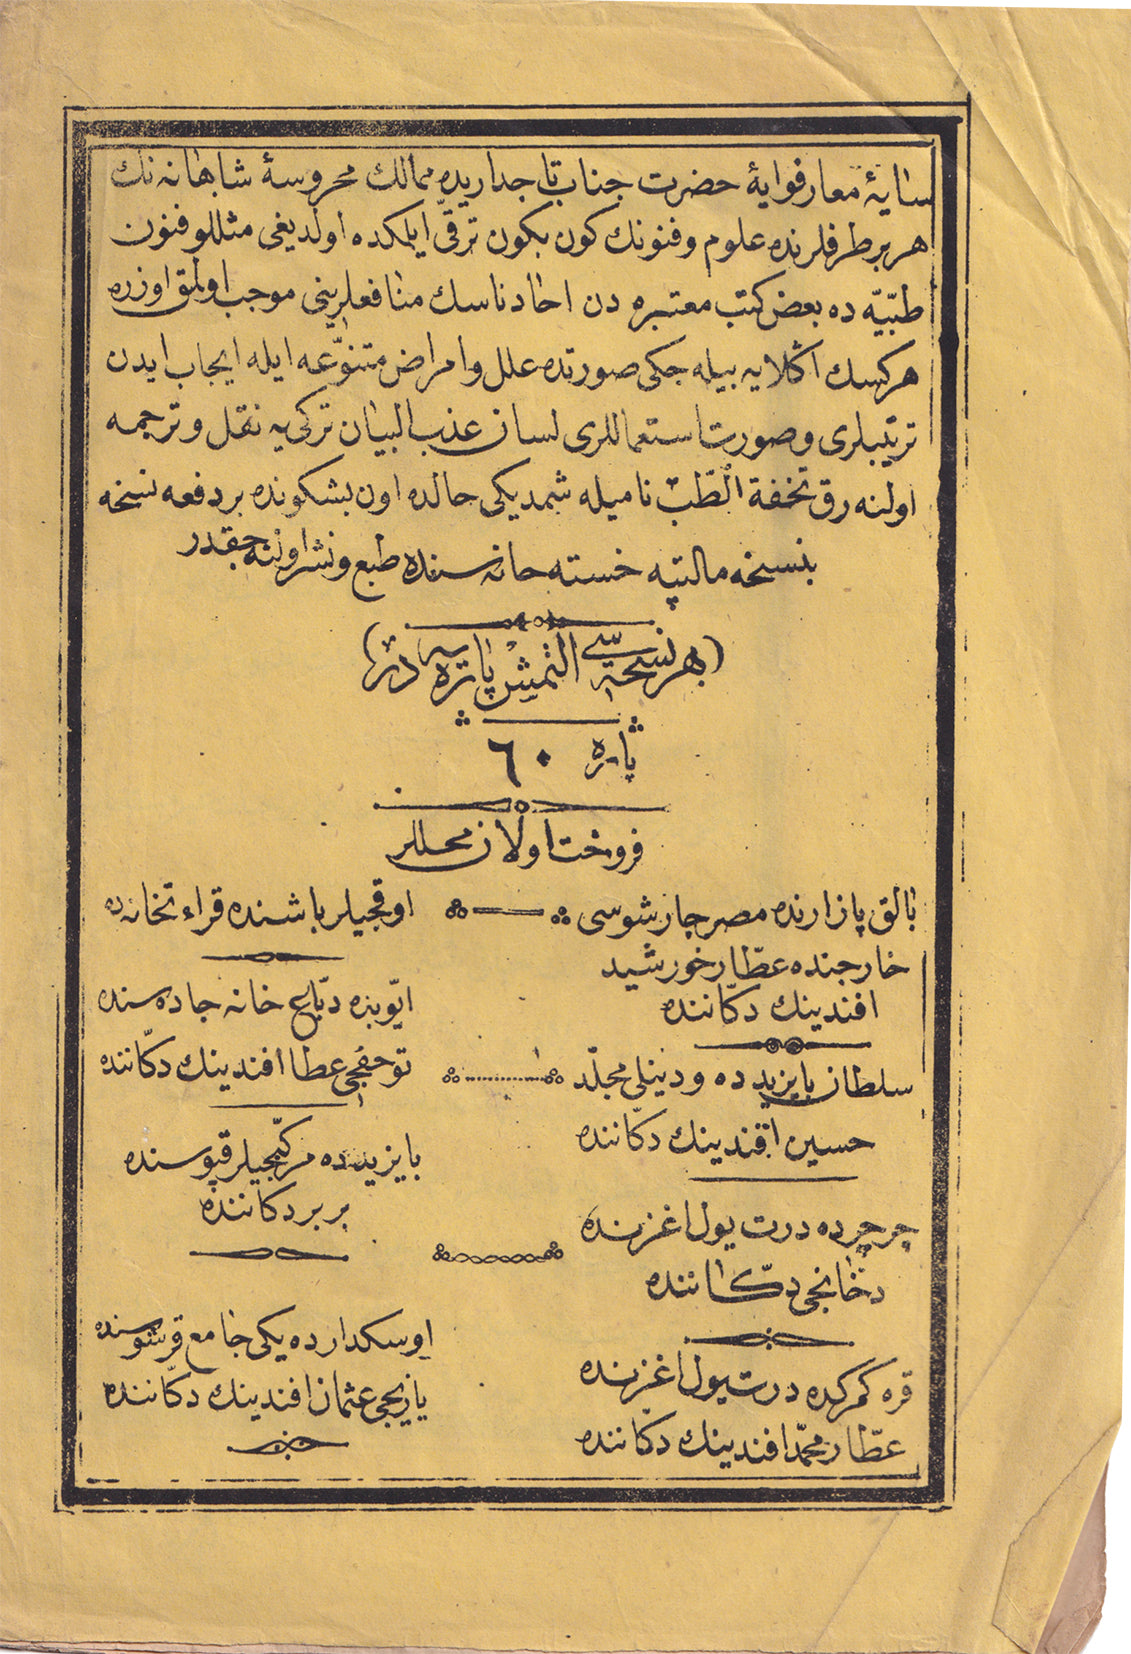 سايهٔ معارفوايهٔ حضرت جناب تاجداريده ممالك محروسهٔ شاهانه نك
هر بر طرفلرنده علوم و فنونك كون بكون ترقّى ايلمكده اولديغى مثللو فنون
طبّيّه ده بعض كتب معتبره دن احاد ناسك منافعلرينى موجب اولمق اوزره
هركسك اڭلايه بيله جكى صورتده علل و امراض متنوّعه ايله ايجاب ايدن
ترتيبلرى و صورت استعماللرى لسان عذب البيان تركى يه نقل و ترجمه
اولنه رق تحفة الطّب ناميله شمديكى حالده اون بشكونده بر دفعه نسخه
بنسخه مالتپه خسته خانه سنده طبع و نشر اولنه جقدر
(هر نسخه سى التمش پاره يه در)
پاره ٦٠
فروخت اولان محللر
بالق پازارنده مصر چارشوسى
خارجنده عطّار خورشيد
افندينك دكّاننده
سلطان بايزيد ده و دينلى مجلّد
حسين افندينك دكّاننده
چرچر ده درت يول اغزنده
دخانجى دكّاننده
قره كمركده درت يول اغزنده
عطّار محمّد افندينك دكاننده
اوقجيلر باشنده قراءتخانه ده
ايّوبده دبّاغ خانه جاده سنده
توحفجى عطا افندينك دكّاننده
بايزيد ده مركّبجيلر قپوسنده
بربر دكاننده
اوسكدار ده يكى جامع قرشوسنده
يازيجى عثمان افندينك دكّاننده